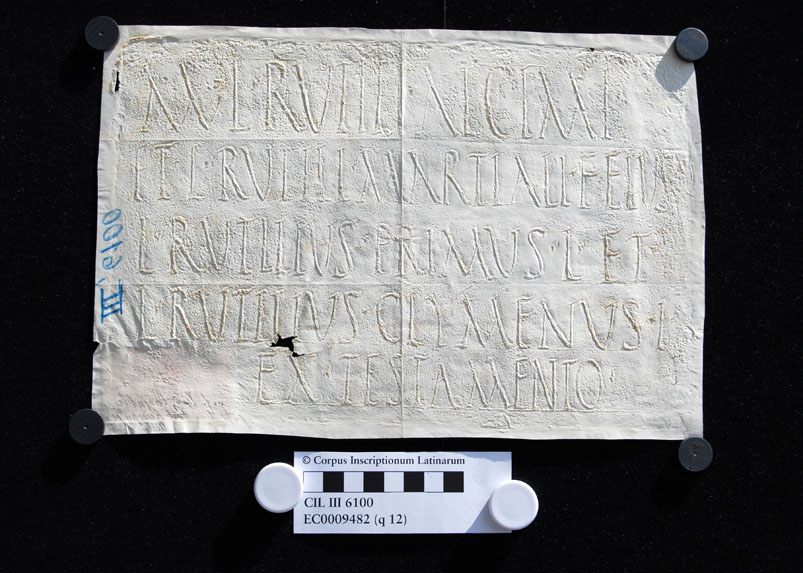 L · RVTILI ALCIMI
ET L · RVTILI MARTIALI · F · EIVS
L · RVTILIVS · PRIMVS · L · ET
L · RVTILIVS · CLYMENVS · L
EX · TESTAMENTO
III, 6100
© Corpus Inscriptionum Latinarum
CIL III 6100
EC0009482 (q 12)